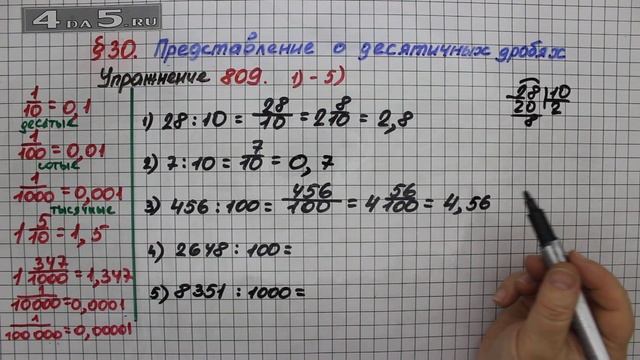 4 DA 5.RU
§ 30. Представление о десятичных дробях
Упражнение 809. 1) - 5)
1/10 = 0,1
десятые
1/100 = 0,01
сотые
1/1000 = 0,001
тысячные
1 5/10 = 1,5
1 347/1000 = 1,347
1/10000 = 0,0001
1/100 000 = 0,00001
1) 28 : 10 = 28/10 = 2 8/10 = 2,8
2) 7 : 10 = 7/10 = 0,7
3) 456 : 100 = 456/100 = 4 56/100 = 4,56
4) 2648 : 100 =
5) 8351 : 1000 =
28 | 10
20 | 2
8